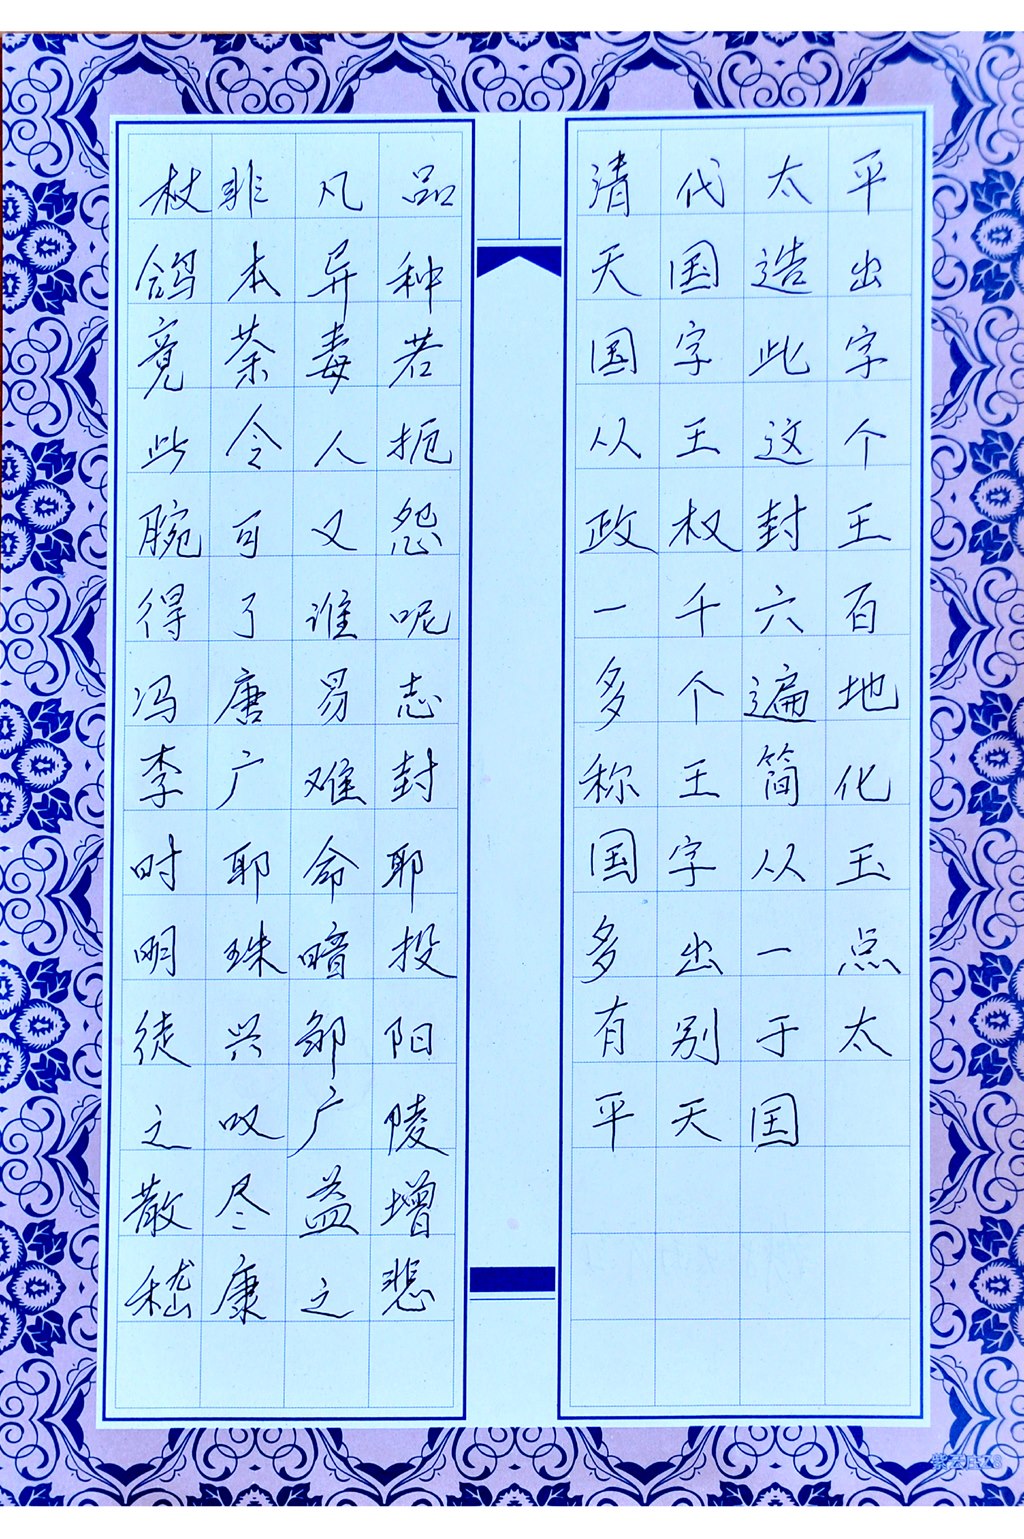 杖非凡品
鸽本异种
竟荼毒若
此令人扼
腕可又怨
得了谁呢
冯唐易志
李广难封
时耶命耶
明珠暗投
徒兴邹阳
之叹广陵
散尽益增
嵇康之悲
清代太平
天国造出
国字此字
从王这个
政权封王
一千六百
多个遍地
称王简化
国字从玉
多出一点
有别于太
平天囯